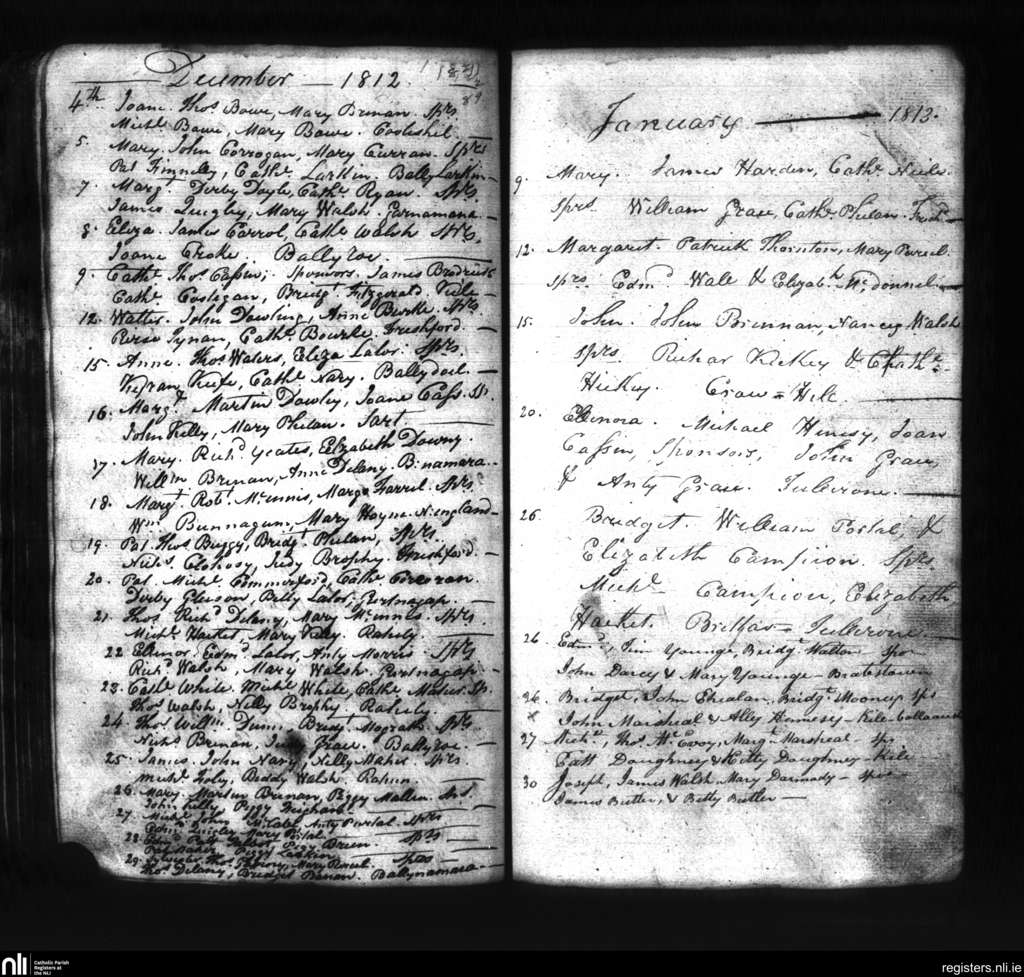 December — 1812
4th Joane. Thos. Bowe, Mary Brenan. Sprs.
Michl. Bowe, Mary Bowe. Cooleshil
5. Mary. John Corrogan, Mary Curran. Sprs
Pat Finnelly, Cathe. Larkin. BallyLarkin
7. Margt. Derby Doyle, Cathe. Ryan. Sprs.
James Quigley, Mary Walsh. Garnamana.
8. Eliza. James Carrol, Cathe. Walsh Sprs,
Joane Croke. Ballyroe.
9. Cathe. Thos. Cassin; Sponsors. James Brodrick
Cathe. Costigan, Bridgt. Fitzgerald.
12. Walter. John Dowling, Anne Burke. Sprs
Pierse Tynan, Cathe. Bourke. Freshford.
15. Anne. Thos. Waters, Eliza Lalor. Sprs.
Kieran Keife, Cathe. Nary. Ballydoil
16. Margt. Martin Dowley, Joane Cass. Sp.
John Kelly, Mary Phelan. Sart.
17. Mary. Richd. Yeates, Elizabeth Downy.
Willm. Brenan, Anne Delany. Binamara.
18. Margt. Robt. McInnis, Margt. Farrel. Sprs
Wm. Bunnagun, Mary Hoyne. N.england
19. Pat. Thos. Buggy, Bridgt. Phelan, Sprs.
Nichs. Clohosy, Judy Brophy. Freshford.
20. Pat. Michl. Commerford, Cathe. Corcoran.
Derby Gleeson, Betty Lalor, Gortnagap.
21. Thos. Richd. Delany, Mary McInnis. Sprs.
Michl. Hacket, Mary Kelly. Rahely
22. Elinor. Edmd. Lalor, Anty Morris. Sprs
Richd. Walsh, Mary Walsh. Gortnagap.
23. Cathe. White. Michl. White, Cathe. Maher. Sp.
Thos. Walsh, Nelly Brophy. Rahely
24. Thos. Willm. Dunn, Bridgt. Mcgrath. Sprs
Nichs. Brenan, Grace. Ballyroe.
25. James. John Nary, Nelly Maher Sprs.
Michl. Foley, Biddy Walsh. Rathun.
26. Mary. Martin Brenan, Biggy Mallen.
John Kelly, Peggy
27. Michl. John Anty Portal. Sprs
Quigley Mary Portal
28. Peggy Breen. Sprs
Peggy Larkin
29. Sylvester Thos. Mary Purcel. Spors
Thos. Delany, Bridget Brenan. Ballynamara
January — 1813.
9. Mary. James Harden, Cathe. Neile.
Sprs. William Grace, Cathe. Phelan.
12. Margaret. Patrick Thornton, Mary Purcel.
Sprs. Edmd. Wall & Elizabh. McDonnell
15. John. John Brennan, Nancy Walsh
Sprs. Richar Hickey & Cathe.
Hickey. Craw=Hill.
20. Ellenora. Michael Henesy, Joan
Cassin, Sponsors, John Grace,
& Anty Grace. Tulleroan.
26. Bridget. William Portal, &
Elizabeth Campion. Sprs
Michl. Campion, Elizabeth
Hacket. Tulleroane
26. Edmd., Tim Younge, Bridgt. Walton Spo
John Darcy & Mary Younge — Bratestown
26. Bridget, John Phealan, Bridgt. Mooney Sps
John Marsheal & Alley Hennesy
27 Thos. McEvoy, Margt. Marsheal — Sps
Patt Doughney & Kitty Doughney
30 Joseph, James Walsh Mary Darmady — Spo
James Butler, & Betty Butler —
nli
Catholic Parish
Registers at
the NLI
registers.nli.ie